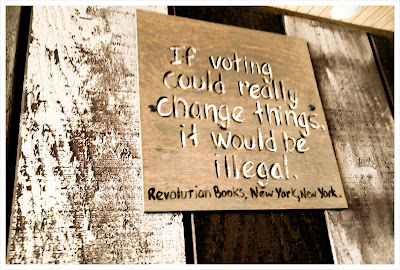 If voting
could really
change things,
it would be
illegal.
Revolution Books, New York, New York.